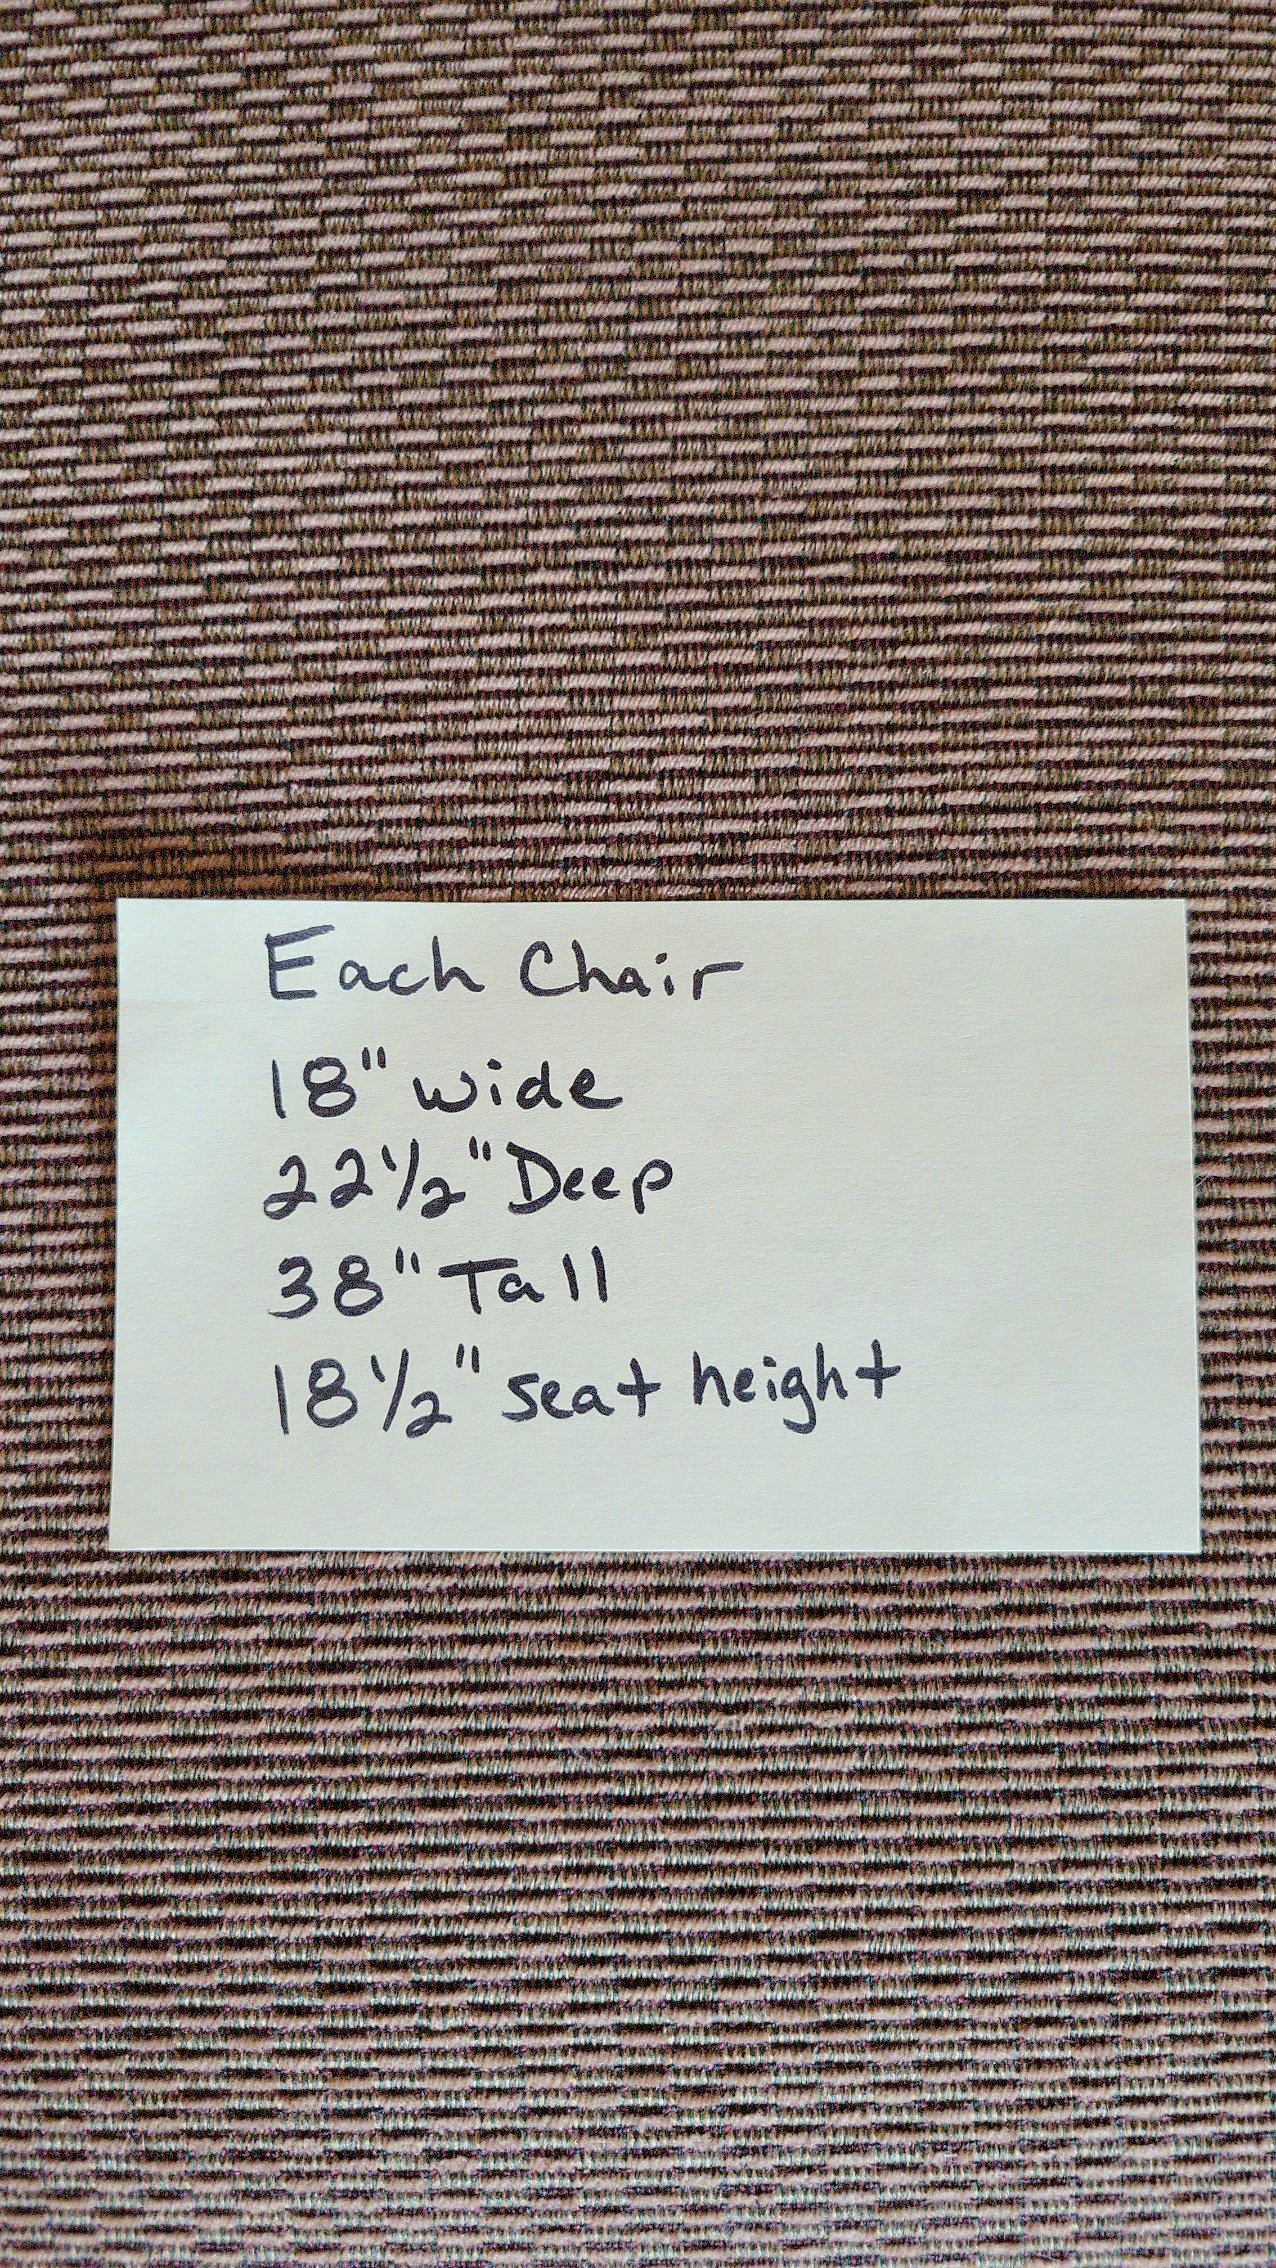 Each Chair
18" wide
22½" Deep
38" Tall
18½" seat height